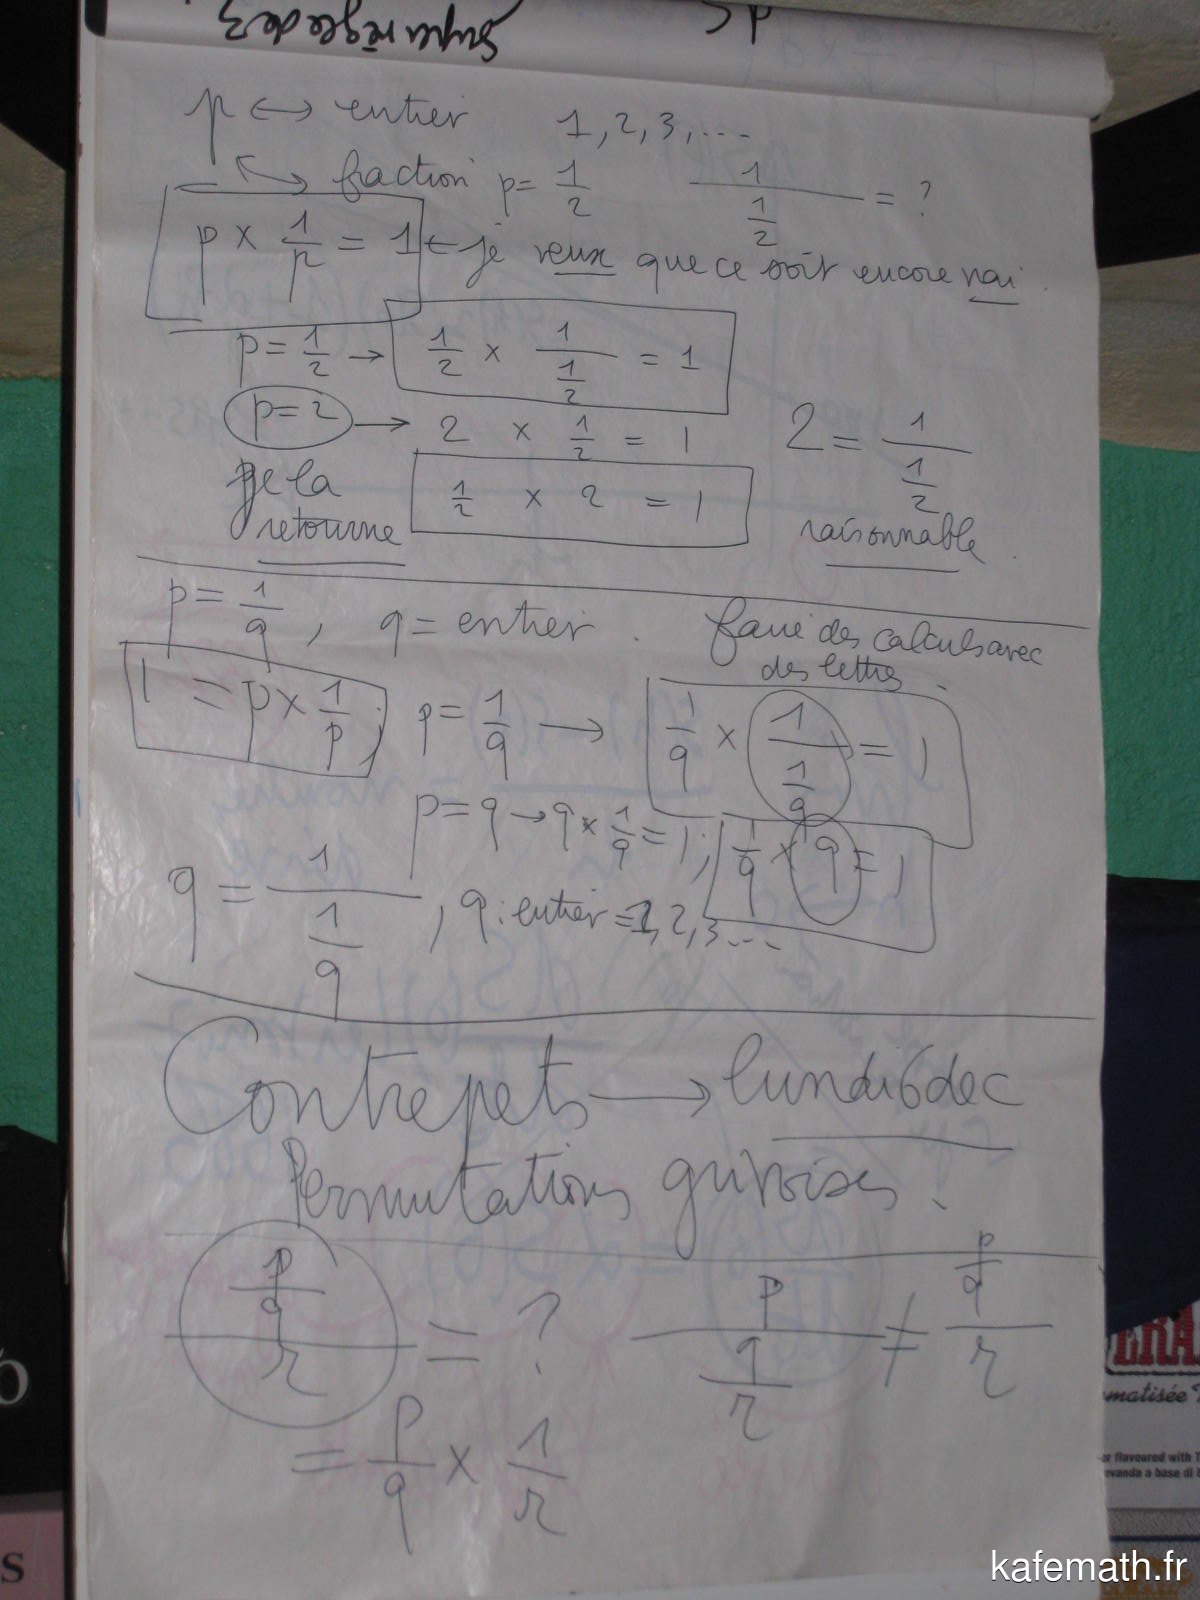 Super règle de 3
p ↔ entier 1, 2, 3, ....
↔ fraction p = 1/2 1/(1/2) = ?
p × 1/p = 1 ← je veux que ce soit encore vrai.
p = 1/2 → 1/2 × 1/(1/2) = 1
p = 2 → 2 × 1/2 = 1 2 = 1/(1/2)
je la 1/2 × 2 = 1
retourne raisonnable.
p = 1/q, q = entier. faire des calculs avec
des lettres.
1 = p × 1/p, p = 1/q → 1/q × 1/(1/q) = 1
p = q → q × 1/q = 1; 1/q × q = 1
q = 1/(1/q), q : entier = 1, 2, 3 ....
Contrepets → lundi 6 dec
Permutations grivoises.
(p/q)/r = ? p/(q/r) ≠ (p/q)/r
= p/q × 1/r
ERA
matisée
flavoured with
vanda a base di
s
kafemath.fr